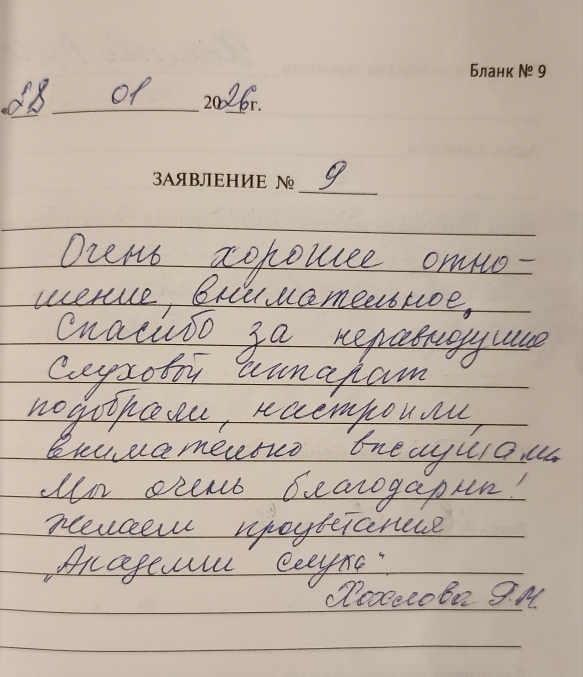 Бланк № 9
28 01 2026 г.
ЗАЯВЛЕНИЕ № 9
Очень хорошее отно-
шение, внимательное.
Спасибо за неравнодушие
Слуховой аппарат
подобрали, настроили,
внимательно выслушали.
Мы очень благодарны!
Желаем процветания
„Академии слуха"
Хохлова Р.М.